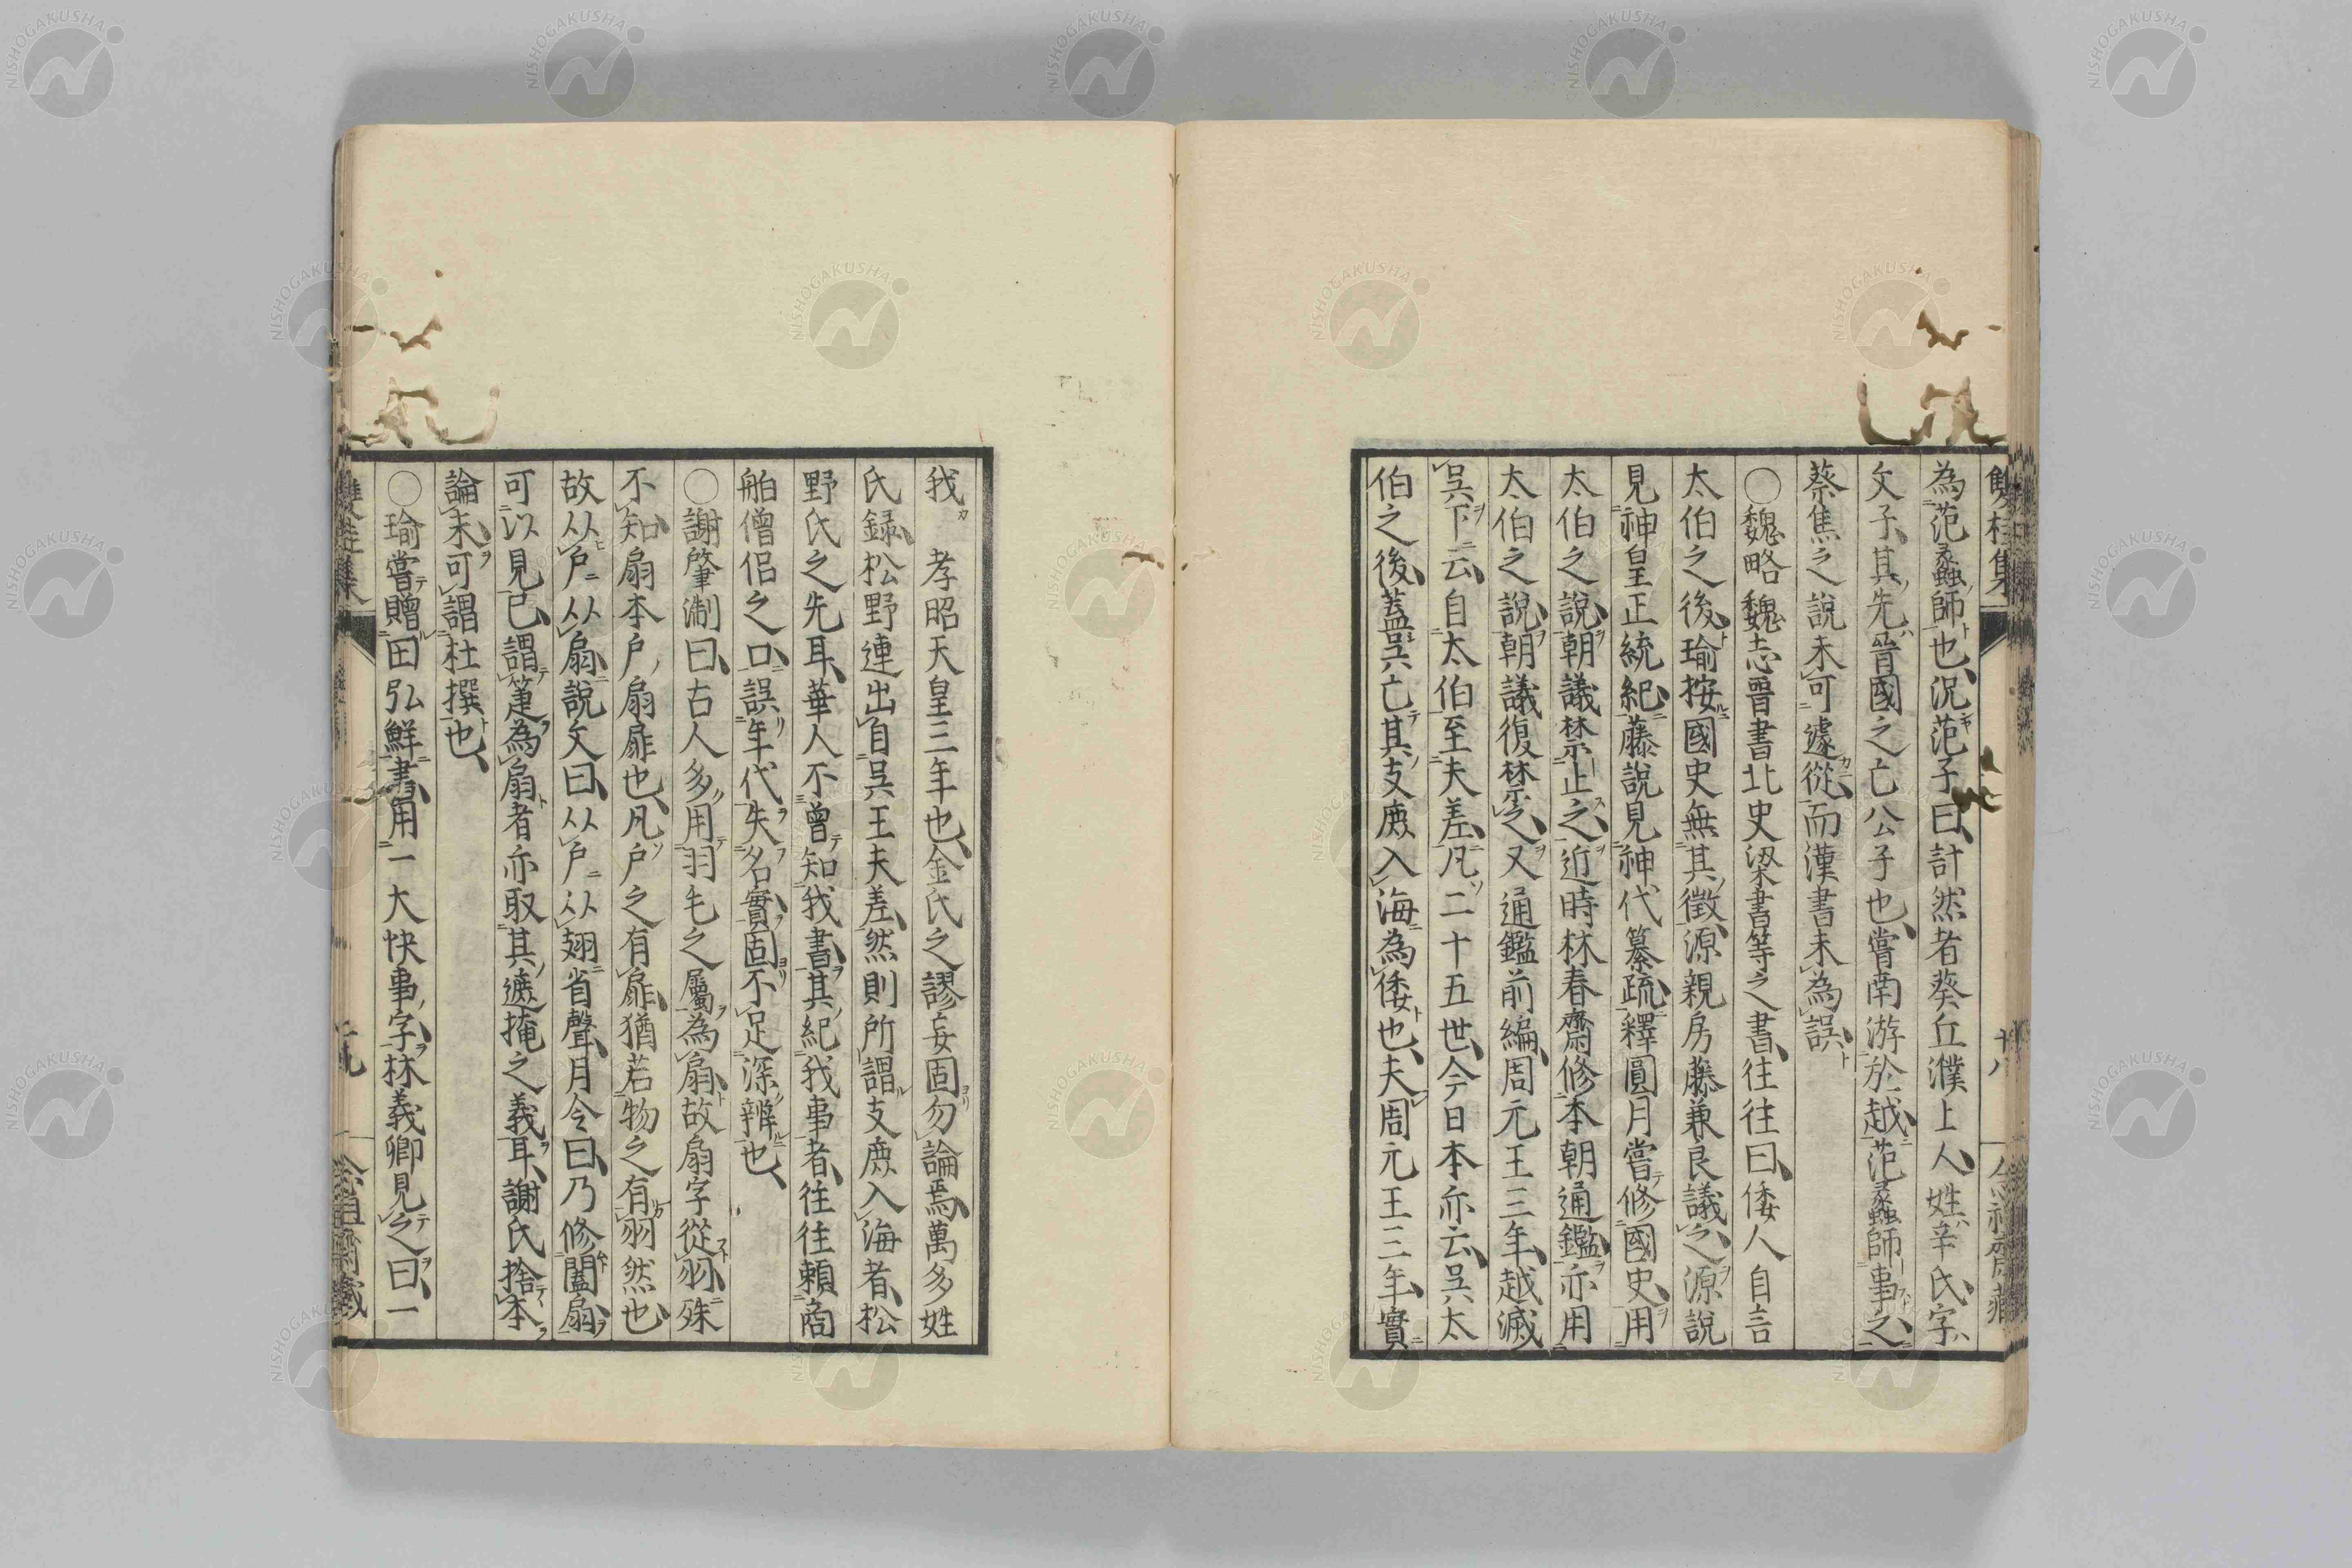 雙桂集 十八
為范蠡師也況范子曰計然者葵丘濮上人姓辛氏字
文子其先晉國之亡公子也嘗南游於越范蠡師事之
蔡焦之說未可遽從而漢書未為誤
○魏略魏志晉書北史梁書等之書往往曰倭人自言
太伯之後瑜按國史無其徵源親房藤兼良議之源說
見神皇正統紀藤說見神代纂疏釋圓月嘗修國史用
太伯之說朝議禁止之近時林春齋修本朝通鑑亦用
太伯之說朝議復禁之又通鑑前編周元王三年越滅
吳下云自太伯至夫差凡二十五世今日本亦云吳太
伯之後蓋吳亡其支庶入海為倭也夫周元王三年實
我 孝昭天皇三年也金氏之謬妄固勿論焉萬多姓
氏錄松野連出自吳王夫差然則所謂支庶入海者松
野氏之先耳華人不曾知我書其紀我事者往往賴商
舶僧侶之口誤年代失名實固不足深辨也
○謝肇淛曰古人多用羽毛之屬為扇故扇字從羽殊
不知扇本戶扇扉也凡戶之有扉猶若物之有羽然也
故从戶从扇說文曰从戶从翅省聲月令曰乃修闔扇
可以見已謂箑為扇者亦取其遮掩之義耳謝氏捨本
論末可謂杜撰也
○瑜嘗贈田弘鮮書用一大快事字林義卿見之曰一
雙桂集 十九